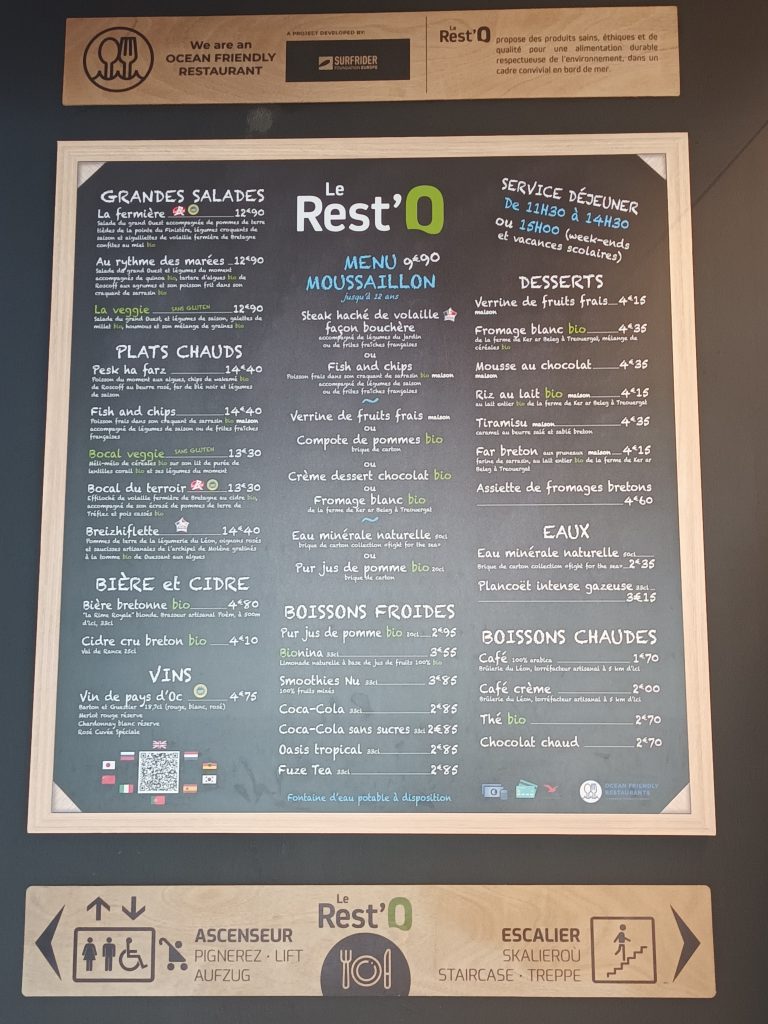 We are an
OCEAN FRIENDLY
RESTAURANT
A PROJECT DEVELOPED BY:
SURFRIDER
FOUNDATION EUROPE
Le
Rest'O
propose des produits sains, éthiques et de
qualité pour une alimentation durable
respectueuse de l'environnement, dans un
cadre convivial en bord de mer.
GRANDES SALADES
La fermière 12€90
Salade du grand Ouest accompagnée de pommes de terre
tièdes de la pointe du Finistère, légumes croquants de
saison et aiguillettes de volaille fermière de Bretagne
confites au miel bio
Au rythme des marées 12€90
Salade du grand Ouest et légumes du moment
accompagnés de quinoa bio, tartare d'algues bio de
Roscoff aux agrumes et son poisson frit dans son
craquant de sarrasin bio
La veggie SANS GLUTEN 12€90
Salade du grand Ouest, et légumes de saison, galettes de
millet bio, houmous et son mélange de graines bio
PLATS CHAUDS
Pesk ha farz 14€40
Poisson du moment aux algues, chips de wakamé bio
de Roscoff au beurre rosé, far de blé noir et légumes
de saison
Fish and chips 14€40
Poisson frais dans son craquant de sarrasin bio maison
accompagné de légumes de saison ou de frites fraîches
françaises
Bocal veggie SANS GLUTEN 13€30
Méli-mélo de céréales bio sur son lit de purée de
lentilles corail bio et ses légumes du moment
Bocal du terroir 13€30
Effiloché de volaille fermière de Bretagne au cidre bio,
accompagné de son écrasé de pommes de terre de
Tréflez et pois cassés bio
Breizhiflette 14€40
Pommes de terre de la légumerie du Léon, oignons rosés
et saucisses artisanales de l'archipel de Molène gratinés
à la tomme bio de Ouessant aux algues
BIÈRE et CIDRE
Bière bretonne bio 4€80
"La Rime Royale" blonde, Brasseur artisanal Poèm, à 500m
d'ici, 33cl
Cidre cru breton bio 4€10
Val de Rance 25cl
VINS
Vin de pays d'Oc 4€75
Barton et Guestier 18,7cl (rouge, blanc, rosé)
Merlot rouge réserve
Chardonnay blanc réserve
Rosé Cuvée Spéciale
Le
Rest'O
MENU 9€90
MOUSSAILLON
jusqu'à 12 ans
Steak haché de volaille
façon bouchère
accompagné de légumes du jardin
ou de frites fraîches françaises
ou
Fish and chips
Poisson frais dans son craquant de sarrasin bio maison
accompagné de légumes de saison
ou de frites fraîches françaises
~
Verrine de fruits frais maison
ou
Compote de pommes bio
brique de carton
ou
Crème dessert chocolat bio
ou
Fromage blanc bio
de la ferme de Ker ar Beleg à Treouergat
~
Eau minérale naturelle 50cl
brique de carton collection «fight for the sea»
ou
Pur jus de pomme bio 20cl
brique de carton
BOISSONS FROIDES
Pur jus de pomme bio 20cl 2€95
Bionina 33cl 3€55
Limonade naturelle à base de jus de fruits 100% bio
Smoothies Nu 33cl 3€85
100% fruits mixés
Coca-Cola 33cl 2€85
Coca-Cola sans sucres 33cl 2€85
Oasis tropical 33cl 2€85
Fuze Tea 33cl 2€85
Fontaine d'eau potable à disposition
SERVICE DÉJEUNER
De 11H30 à 14H30
ou 15H00 (week-ends
et vacances scolaires)
DESSERTS
Verrine de fruits frais 4€15
maison
Fromage blanc bio 4€35
de la ferme de Ker ar Beleg à Treouergat, mélange de
céréales bio
Mousse au chocolat 4€35
maison
Riz au lait bio maison 4€15
au lait entier bio de la ferme de Ker ar Beleg à Treouergat
Tiramisu maison 4€35
caramel au beurre salé et sablé breton
Far breton aux pruneaux maison 4€15
farine de sarrasin, au lait entier bio de la ferme de Ker ar
Beleg à Treouergat
Assiette de fromages bretons
4€60
EAUX
Eau minérale naturelle 50cl
Brique de carton collection «fight for the sea» 2€35
Plancoët intense gazeuse 33cl
3€15
BOISSONS CHAUDES
Café 100% arabica 1€70
Brûlerie du Léon, torréfacteur artisanal à 5 km d'ici
Café crème 2€00
Brûlerie du Léon, torréfacteur artisanal à 5 km d'ici
Thé bio 2€70
Chocolat chaud 2€70
OCEAN FRIENDLY
RESTAURANTS
ASCENSEUR
PIGNEREZ · LIFT
AUFZUG
Le
Rest'O
ESCALIER
SKALIEROÙ
STAIRCASE · TREPPE